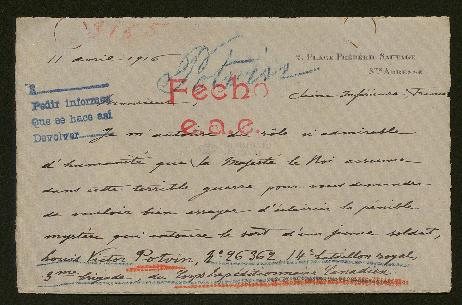 3155
11 avril - 1916
Potvin
2, PLACE FRÉDÉRIC SAUVAGE
STE ADRESSE
Seine Inférieure - France
Fecho
e.a.c.
Pedir informes
Que se hace así
Devolver
Monsieur,
Je m'autorise du rôle si admirable
d'humanité que Sa Majesté le Roi assume
dans cette terrible guerre pour vous demander
de vouloir bien essayer d'éclaircir le pénible
mystère qui entoure le sort d'un jeune soldat,
Louis Victor Potvin, No 26362 14e bataillon royal,
3me brigade du Corps Expéditionnaire Canadien